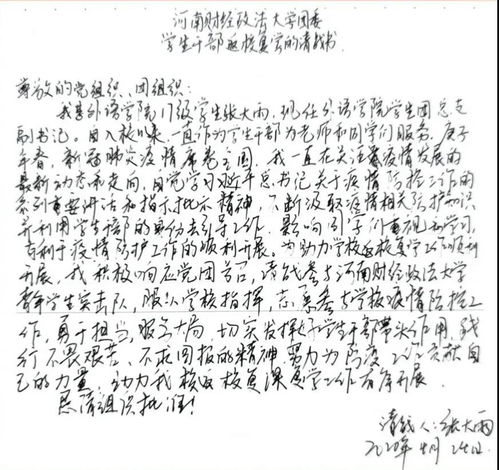 河南财经政法大学团委
学生干部返校复学的请战书
尊敬的党组织、团组织：
我是外语学院17级学生张大雨，现任外语学院学生团总支
副书记。自入校以来，一直作为学生干部为老师和同学们服务。庚子
年春，新冠肺炎疫情席卷全国，我一直在关注着疫情发展的
最新动态和走向，自觉学习习近平总书记关于疫情防控工作的
系列重要讲话和指示批示精神，不断汲取疫情相关防护知识
并利用学生干部的身份去引导工作，影响同学们重视和学习，
有利于疫情防护工作的顺利开展。为助力学校返校复学工作顺利
开展，我积极响应党团号召，请战参与河南财经政法大学
青年学生突击队，服从学校指挥，志愿参与学校疫情防控工
作，勇于担当，服务大局，切实发挥好学生干部带头作用，践
行不畏艰苦、不求回报的精神，努力为防疫工作贡献自
己的力量，助力我校返校复课复学工作有序开展。
恳请组织批准！
请战人：张大雨
2020年4月24日